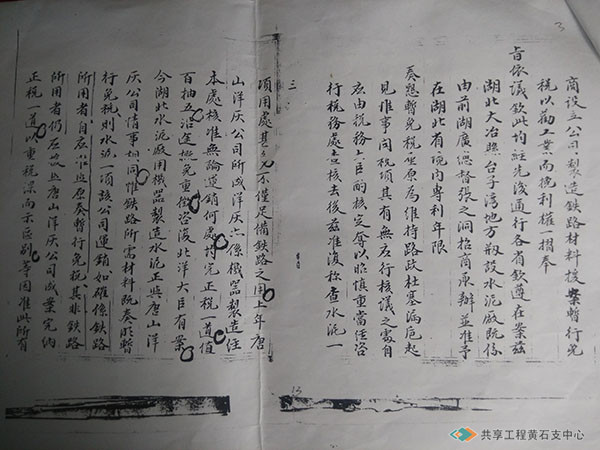 3
商設立公司製造鐵路材料援案暫行免
稅以勸工業而挽利權一摺奉
旨依議欽此均經先後通行各省欽遵在案茲
湖北大冶縣台子灣地方設水泥廠既係
由前湖廣總督張之洞招商承辦並准予
在湖北省境內專利年限
奏懇暫免稅原為維持路政杜塞漏卮起
見惟事同稅項其有無应行核議之處自
应由稅務大臣酌核定奪以昭慎重當經咨
行稅務處查核去後茲准復称查水泥一
三
項用處甚多不僅足備鐵路之用上年唐
山洋灰公司所洋灰亦係機器製造
本處核准無論運銷何處均完正税一道值
百抽五沿途概免重徵咨復北洋大臣有案
今湖北水泥廠用機器製造水泥正與唐山洋
灰公司情事相同惟鐵路所需材料既奏明暫
行免税則水泥一項該公司運銷如確係鐵路
所用者自應准照原奏暫行免税其非鐵路
所用者仍应照唐山洋灰公司成案完納
正税一道以重税課而示區别等因准此所有
共享工程黄石支中心